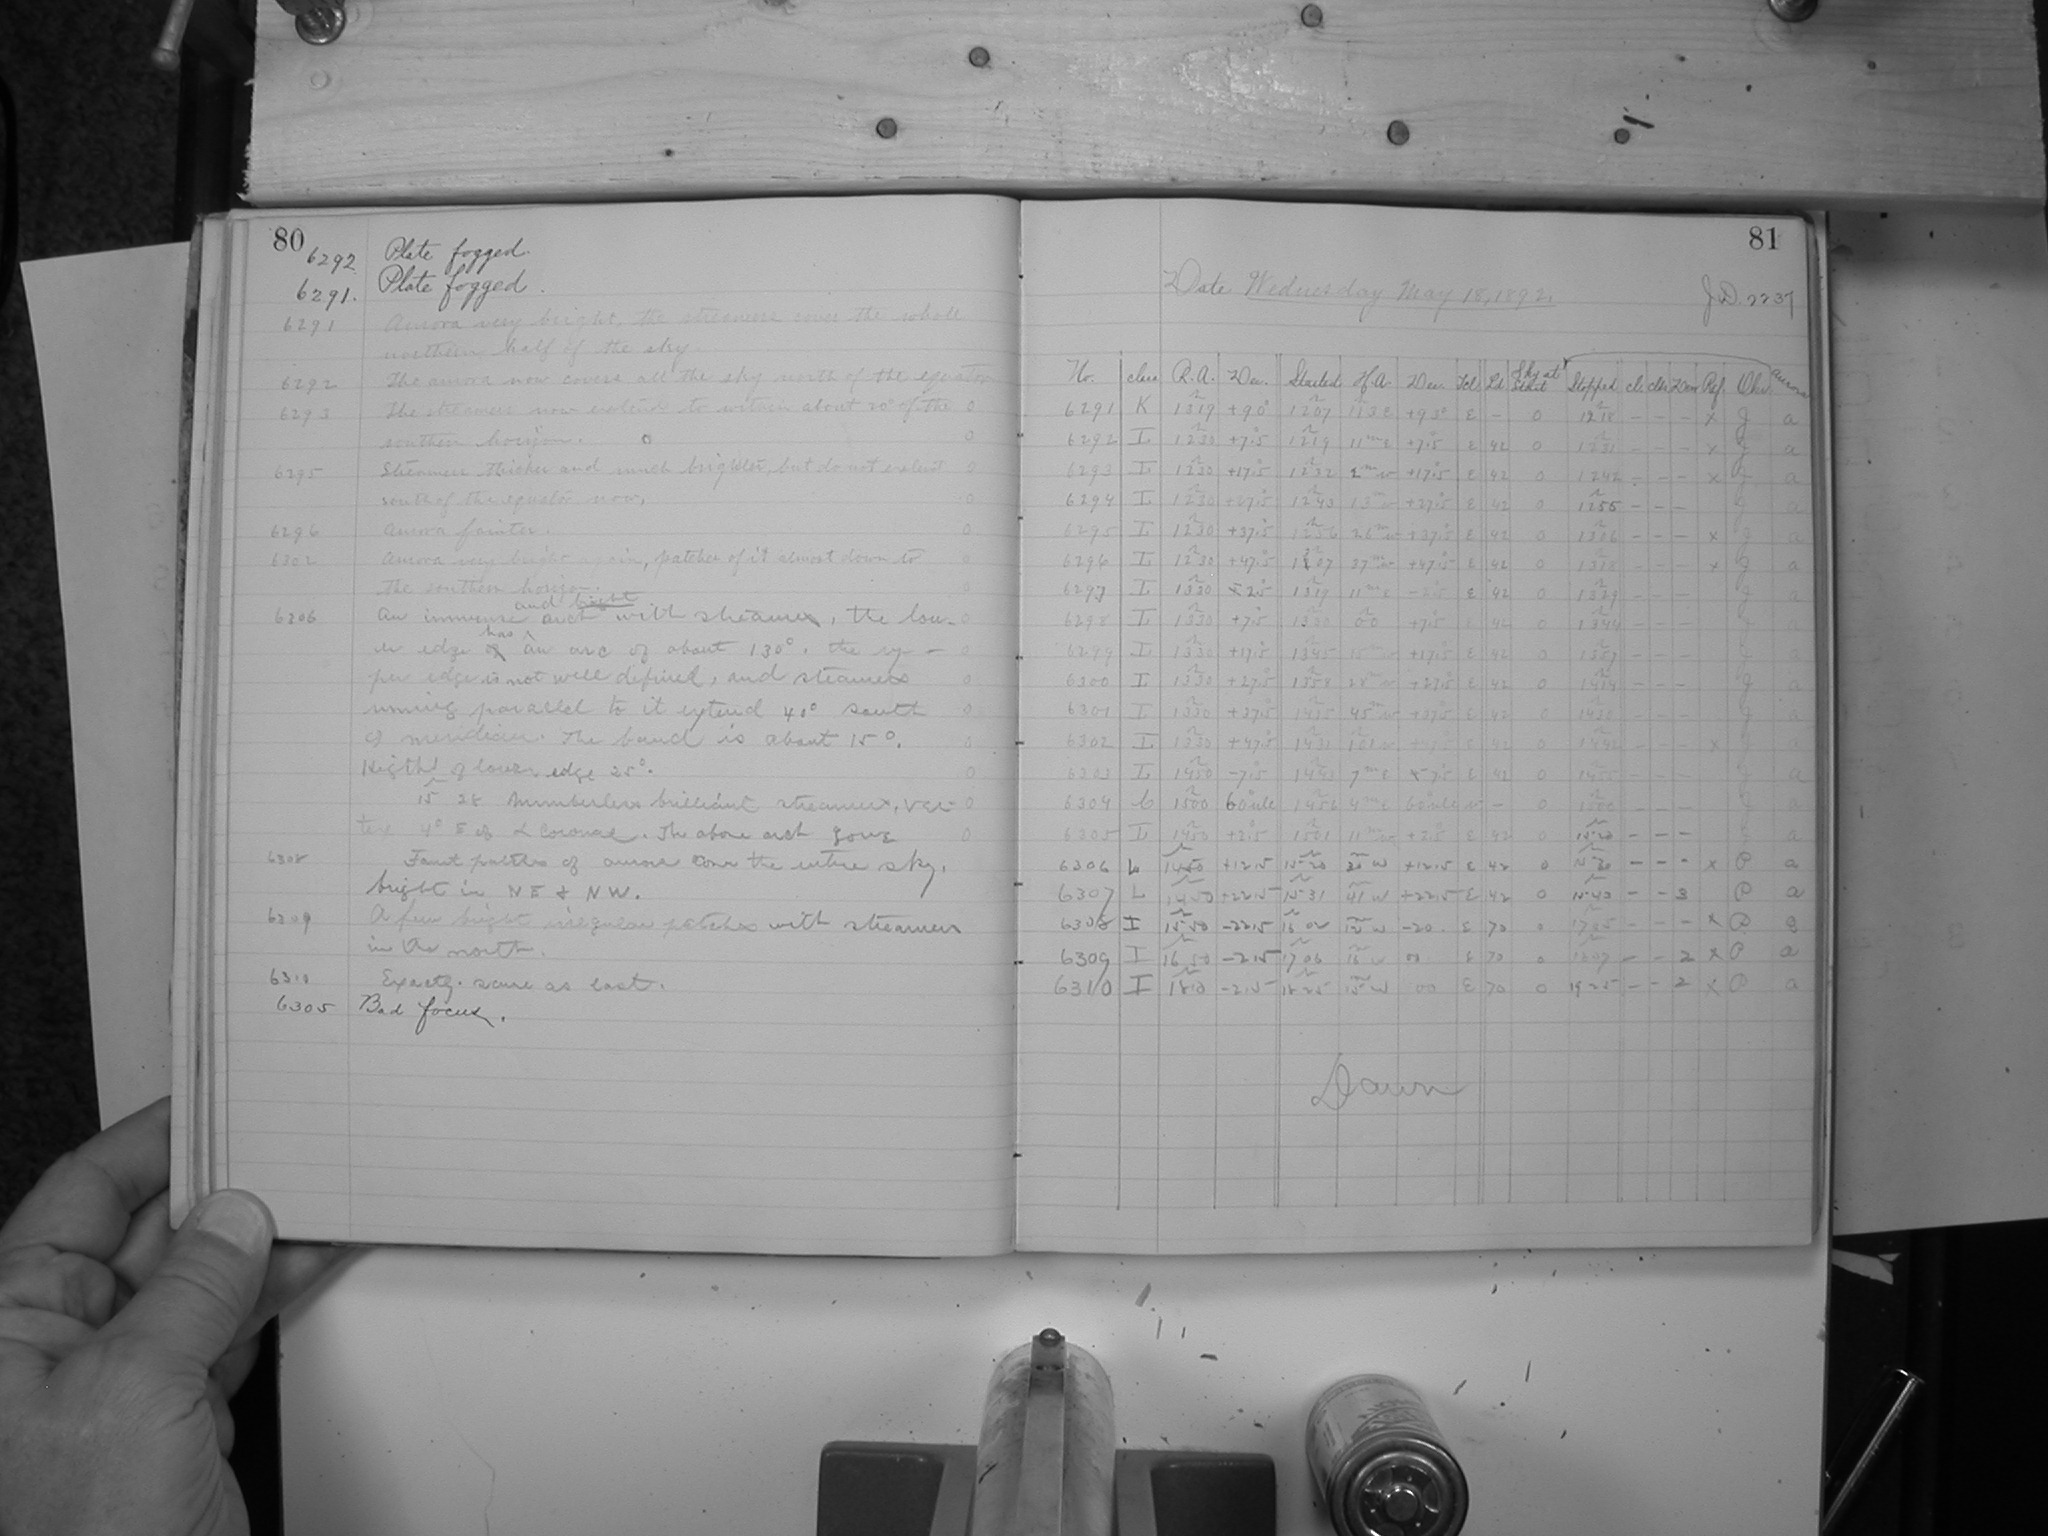 80
6292 Plate fogged.
6291. Plate fogged.
6291 Aurora very bright, the streamers cover the whole
northern half of the sky.
6292 The aurora now covers all the sky north of the equator
6293 The streamers now extend to within about 20° of the 0
southern horizon. 0
6295 Streamers thicker and much brighter, but do not extend 0
south of the equator now. 0
6296 Aurora fainter. 0
6302 Aurora very bright again, patches of it almost down to 0
the southern horizon. 0
and bright
6306 An immense arch with streamers, the low- 0
has
er edge an arc of about 130°. the up- 0
per edge is not well defined, and streamers 0
running parallel to it extend 40° south 0
of meridian. The band is about 15°. 0
Higth of lower edge 25°. 0
15 28 Numberless brilliant streamers, 0
4° E of α Coronae. The above arch gone 0
6308 Faint patches of aurora over the entire sky,
bright in NE & NW.
6309 A few bright irregular patches with streamers
in the north.
6310 Exactly same as last.
6305 Bad focus.
81
Date Wednesday May 18, 1892.
J.D. 2237
No. class R.A. Dec. Started H.A. Dec. Tel. Ld. Sky at start Stopped cl. Clks Dew Ref. Obs. aurora
6291 K 1319 +90° 1207 +93° E - 0 1218 - - - x J a
6292 I 1230 +7.5 1219 11m E +7.5 E 42 0 1231 - - - x J a
6293 I 1230 +17.5 1232 2m w +17.5 E 42 0 1242 - - - x J a
6294 I 1230 +27.5 1243 13m w +27.5 E 42 0 1255 - - - J a
6295 I 1230 +37.5 1256 26m w +37.5 E 42 0 1306 - - - x J a
6296 I 1230 +47.5 1307 37m w +47.5 E 42 0 1318 - - - x J a
6297 I 1330 -2.5 1319 11m E -2.5 E 42 0 1329 - - - J a
6298 I 1330 +7.5 1330 00 +7.5 E 42 0 1344 - - - J a
6299 I 1330 +17.5 1345 15m w +17.5 E 42 0 1357 - - - J a
6300 I 1330 +27.5 1358 28m w +27.5 E 42 0 1414 - - - J a
6301 I 1330 +37.5 1415 45m w +37.5 E 42 0 1430 - - - J a
6302 I 1330 +47.5 1431 101 w E 42 0 1442 - - - x J a
6303 I 1450 -7.5 1443 7m E -7.5 E 42 0 1455 - - - J a
6304 C 1500 1456 4m E w - 0 1500 - - - J a
6305 I 1450 +2.5 1501 11m w +2.5 E 42 0 1520 - - - J a
6306 L 1450 +12.5 1520 30 w +12.5 E 42 0 1530 - - - x P a
6307 L 1450 +22.5 1531 41 w +22.5 E 42 0 1543 - - 3 P a
6308 I 1550 -22.5 16 02 12 w -20. E 70 0 1705 - - - x P a
6309 I 16 50 -2.5 17 06 16 w 00 E 70 0 1807 - - 2 x P a
6310 I 1810 -2.5 18 25 15 w 00 E 70 0 19 25 - - 2 x P a
Dawn